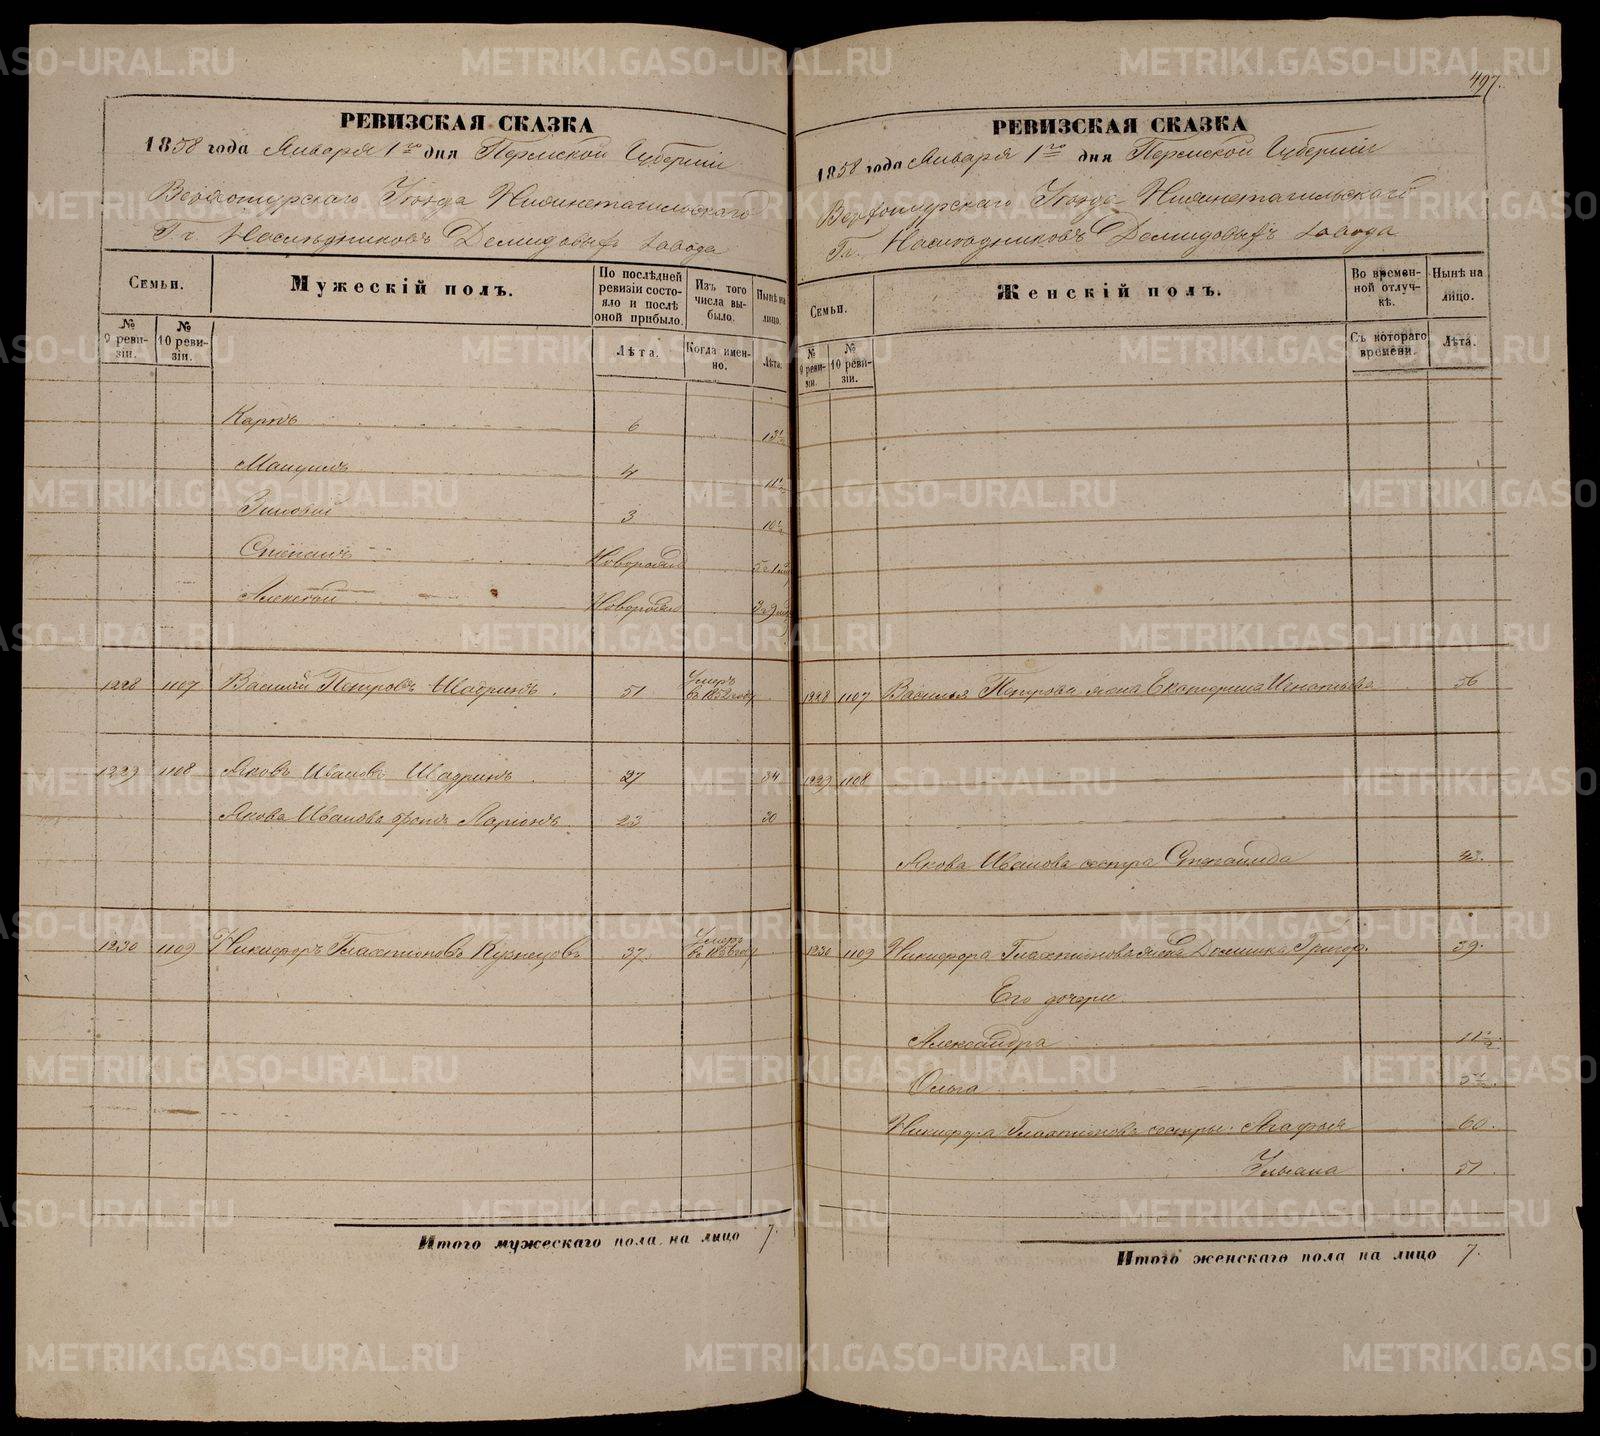 497.
РЕВИЗСКАЯ СКАЗКА
1858 года Января 1го дня Пермской Губернiи
Верхотурскаго Уѣзда Нижнетагильскаго
Гг. Наслѣдниковъ Демидовыхъ завода
Семьи.
Мужескiй полъ.
По послѣдней ревизiи состояло и послѣ оной прибыло.
Изъ того числа выбыло.
Нынѣ на лицо.
№ 9 ревизiи.
№ 10 ревизiи.
Лѣта.
Когда именно.
Лѣта.
Карпъ 6 13½
Мануилъ 4 11½
Зиновiй 3 10½
Степанъ Новорожд
Алексѣй Новорожд
1228 1107 Василiй Петровъ Шадринъ. 51 Умеръ
1229 1108 Яковъ Ивановъ Шадринъ. 27 34
Якова Иванова братъ Ларiонъ 23 30
1230 1109 Никифоръ Галактiоновъ Кузнецовъ 37 Умеръ
Итого мужескаго пола на лицо 7.
РЕВИЗСКАЯ СКАЗКА
1858 года Января 1го дня Пермской Губернiи
Верхотурскаго Уѣзда Нижнетагильскаго
Гг. Наслѣдниковъ Демидовыхъ завода
Семьи.
Женскiй полъ.
Во временной отлучкѣ.
Нынѣ на лицо.
№ 9 ревизiи.
№ 10 ревизiи.
Съ котораго времени.
Лѣта.
1228 1107 Василья Петрова жена Екатерина Игнатьева 56
1229 1108
Якова Иванова сестра Степанида
1230 1109 Никифора Галактiонова жена Домника Григор. 39.
Его дочери
Александра 11½
Ольга 5½.
Никифора Галактiонова сестры: Агафья 60.
Ульяна 51.
Итого женскаго пола на лицо 7.
METRIKI.GASO-URAL.RU